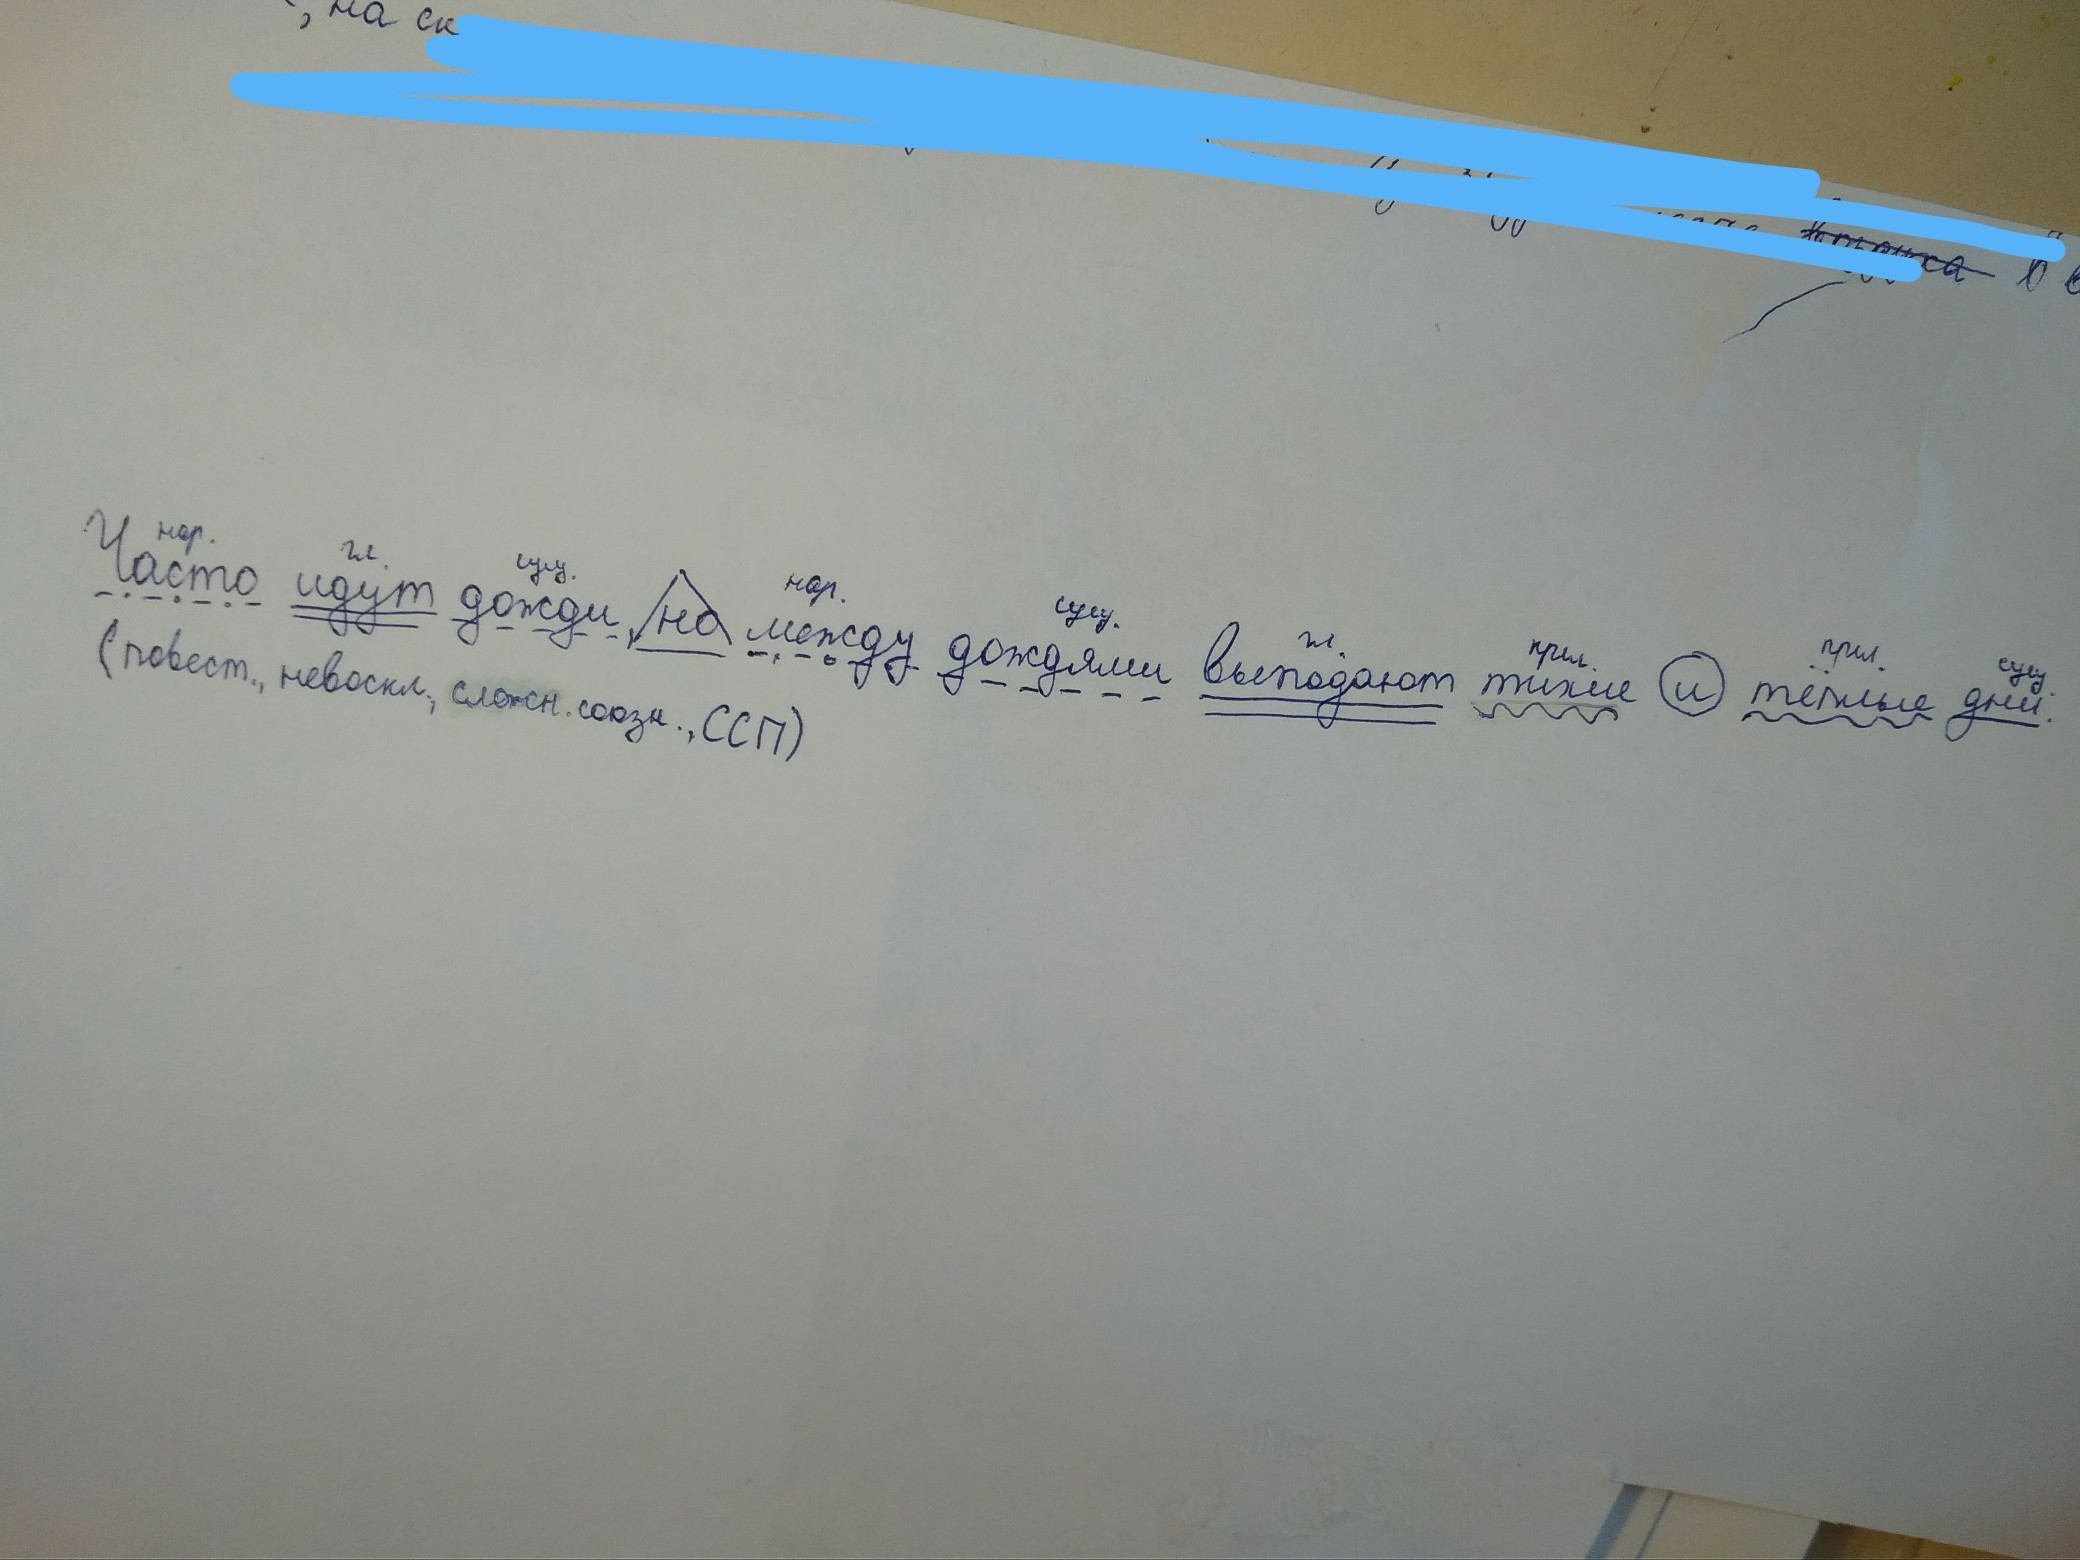 , на ск
в в
нар. гл. сущ. нар. сущ. гл. прил. прил. сущ.
Часто идут дожди, но между дождями выпадают тихие и тёплые дни.
(повест., невоскл., сложн. союзн., ССП)